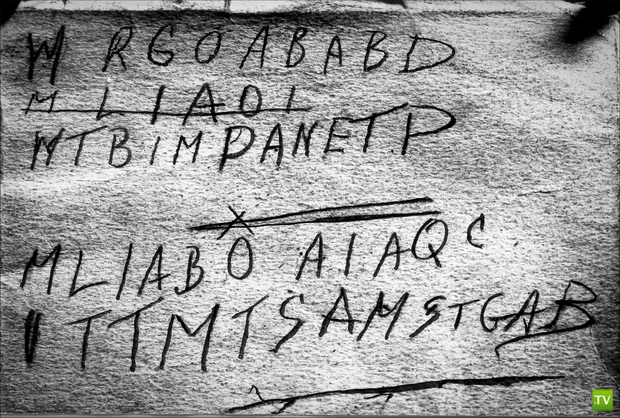 W RGOABABD
MLIAOI
WTBIMPANETP
MLIABO AIAQC
ITTMTSAMSTGAB
TV